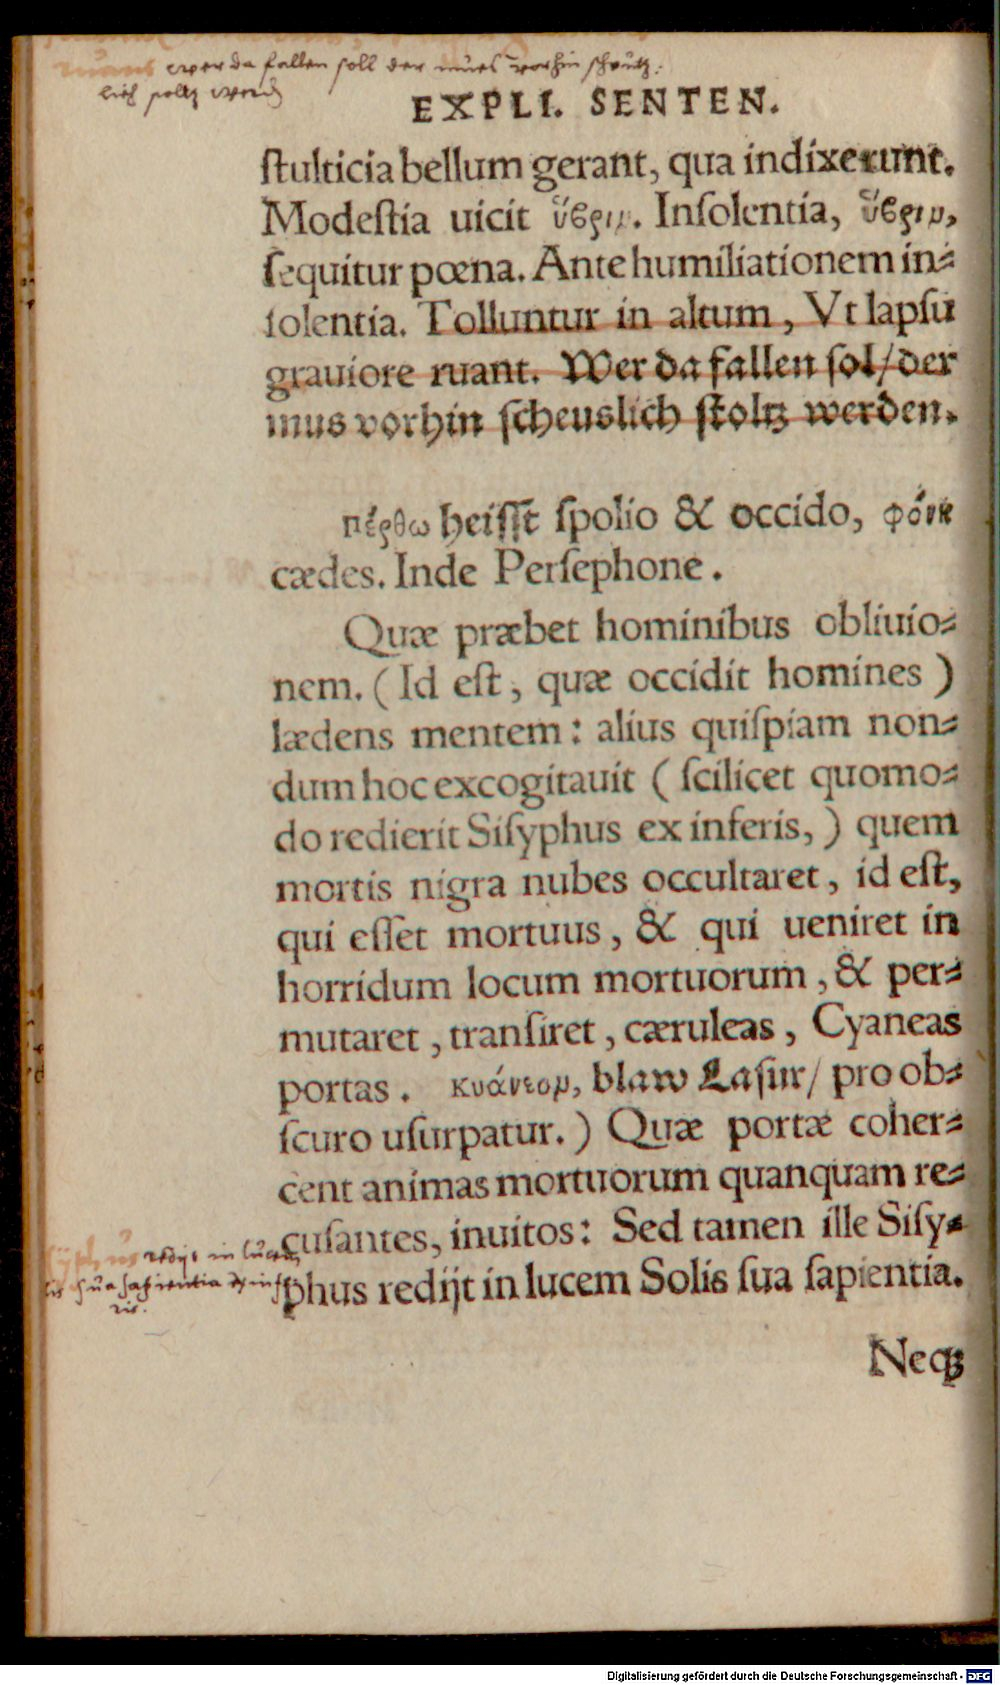 wer da fallen soll der mues vorhin
lich
EXPLI. SENTEN.
ſtulticia bellum gerant, qua indixerunt.
Modeſtia uicit ὕβριν. Inſolentia, ὕβριν,
ſequitur pœna. Ante humiliationem in⸗
ſolentia. Tolluntur in altum, Vt lapſu
grauiore ruant. Wer da fallen ſol/ der
mus vorhin ſcheuslich ſtoltz werden.
πέρθω heiſſt ſpolio & occido, φόνη
cædes. Inde Perſephone.
Quæ præbet hominibus obliuio⸗
nem. (Id eſt, quæ occidit homines)
lædens mentem: alius quiſpiam non⸗
dum hoc excogitauit (ſcilicet quomo⸗
do redierit Siſyphus ex inferis,) quem
mortis nigra nubes occultaret, id eſt,
qui eſſet mortuus, & qui ueniret in
horridum locum mortuorum, & per⸗
mutaret, tranſiret, cæruleas, Cyaneas
portas. κυάνεον, blaw Laſur/ pro ob⸗
ſcuro uſurpatur.) Quæ portæ coher⸗
cent animas mortuorum quanquam re⸗
cuſantes, inuitos: Sed tamen ille Siſy⸗
phus redijt in lucem Solis ſua ſapientia.
redijt in lucem
sua sapientia
Neqꝫ
Digitalisierung gefördert durch die Deutsche Forschungsgemeinschaft - DFG